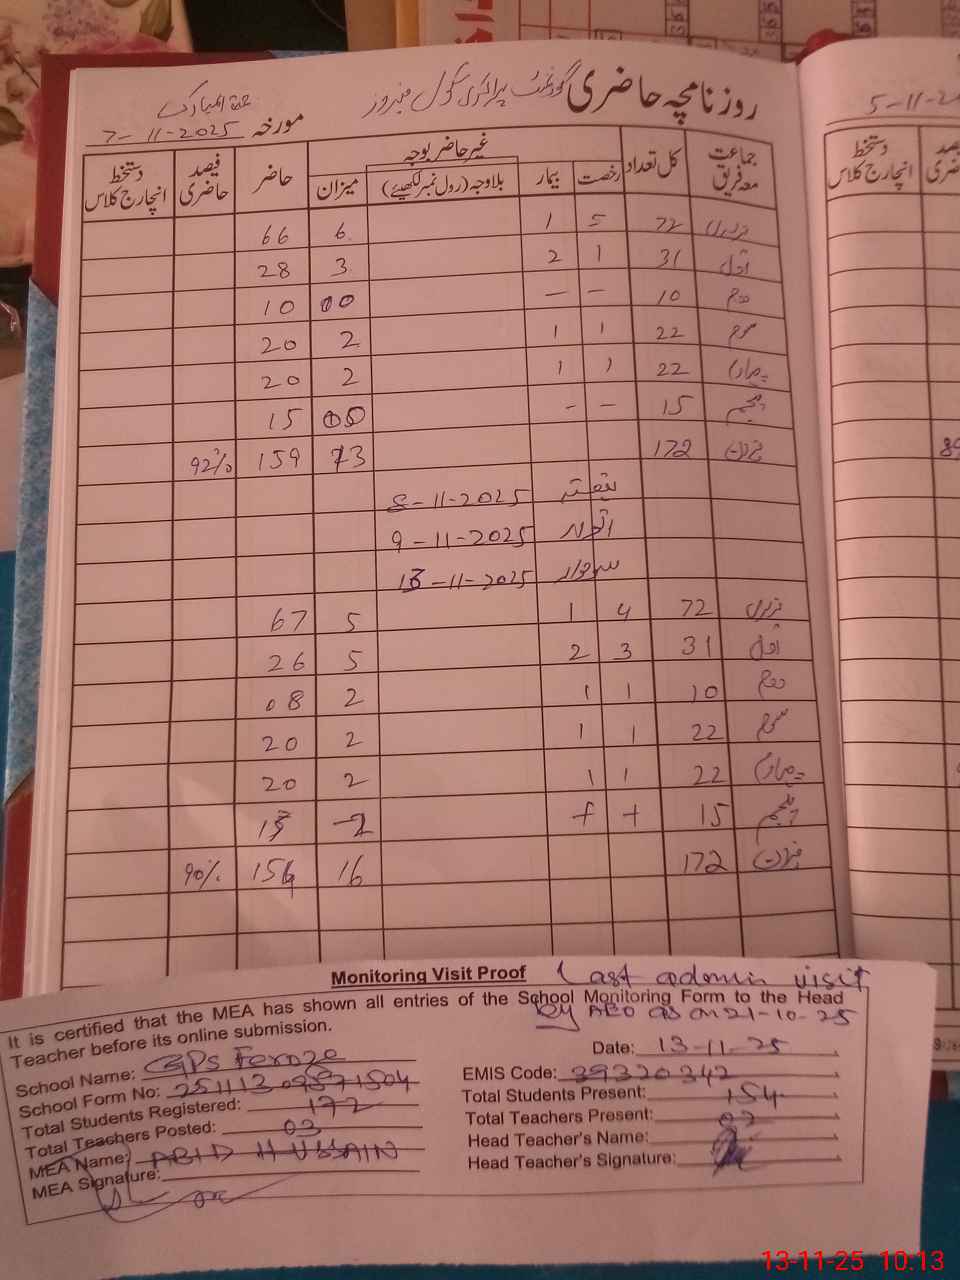 روزنامچہ حاضری گورنمنٹ پرائمری سکول فیروز
جمعۃ المبارک
مورخہ 7-11-2025
جماعت معہ فریق کل تعداد غیر حاضر بوجہ حاضر فیصد حاضری دستخط انچارج کلاس
رخصت بیمار بلاوجہ (رول نمبر لکھیئے) میزان
72 5 1 6 66
اول 31 1 2 3 28
دوم 10 – – 00 10
سوم 22 1 1 2 20
چہارم 22 1 1 2 20
پنجم 15 – – 00 15
میزان 172 13 159 92%
ہفتہ 8-11-2025
اتوار 9-11-2025
سوموار -11-2025
72 4 1 5 67
اول 31 3 2 5 26
دوم 10 1 1 2 08
سوم 22 1 1 2 20
چہارم 22 1 1 2 20
پنجم 15 2
میزان 172 16 156 90%
5-11-2
دستخط انچارج کلاس
Monitoring Visit Proof Last admin visit
by AEO as on 21-10-25
It is certified that the MEA has shown all entries of the School Monitoring Form to the Head
Teacher before its online submission.
Date: 13-11-25
School Name: GPS Feroze
EMIS Code: 39320342
School Form No: 
Total Students Present: 154
Total Students Registered: 172
Total Teachers Present: 03
Total Teachers Posted: 03
Head Teacher's Name:
MEA Name: ABID HUSSAIN
Head Teacher's Signature:
MEA Signature:
13-11-25 10:13